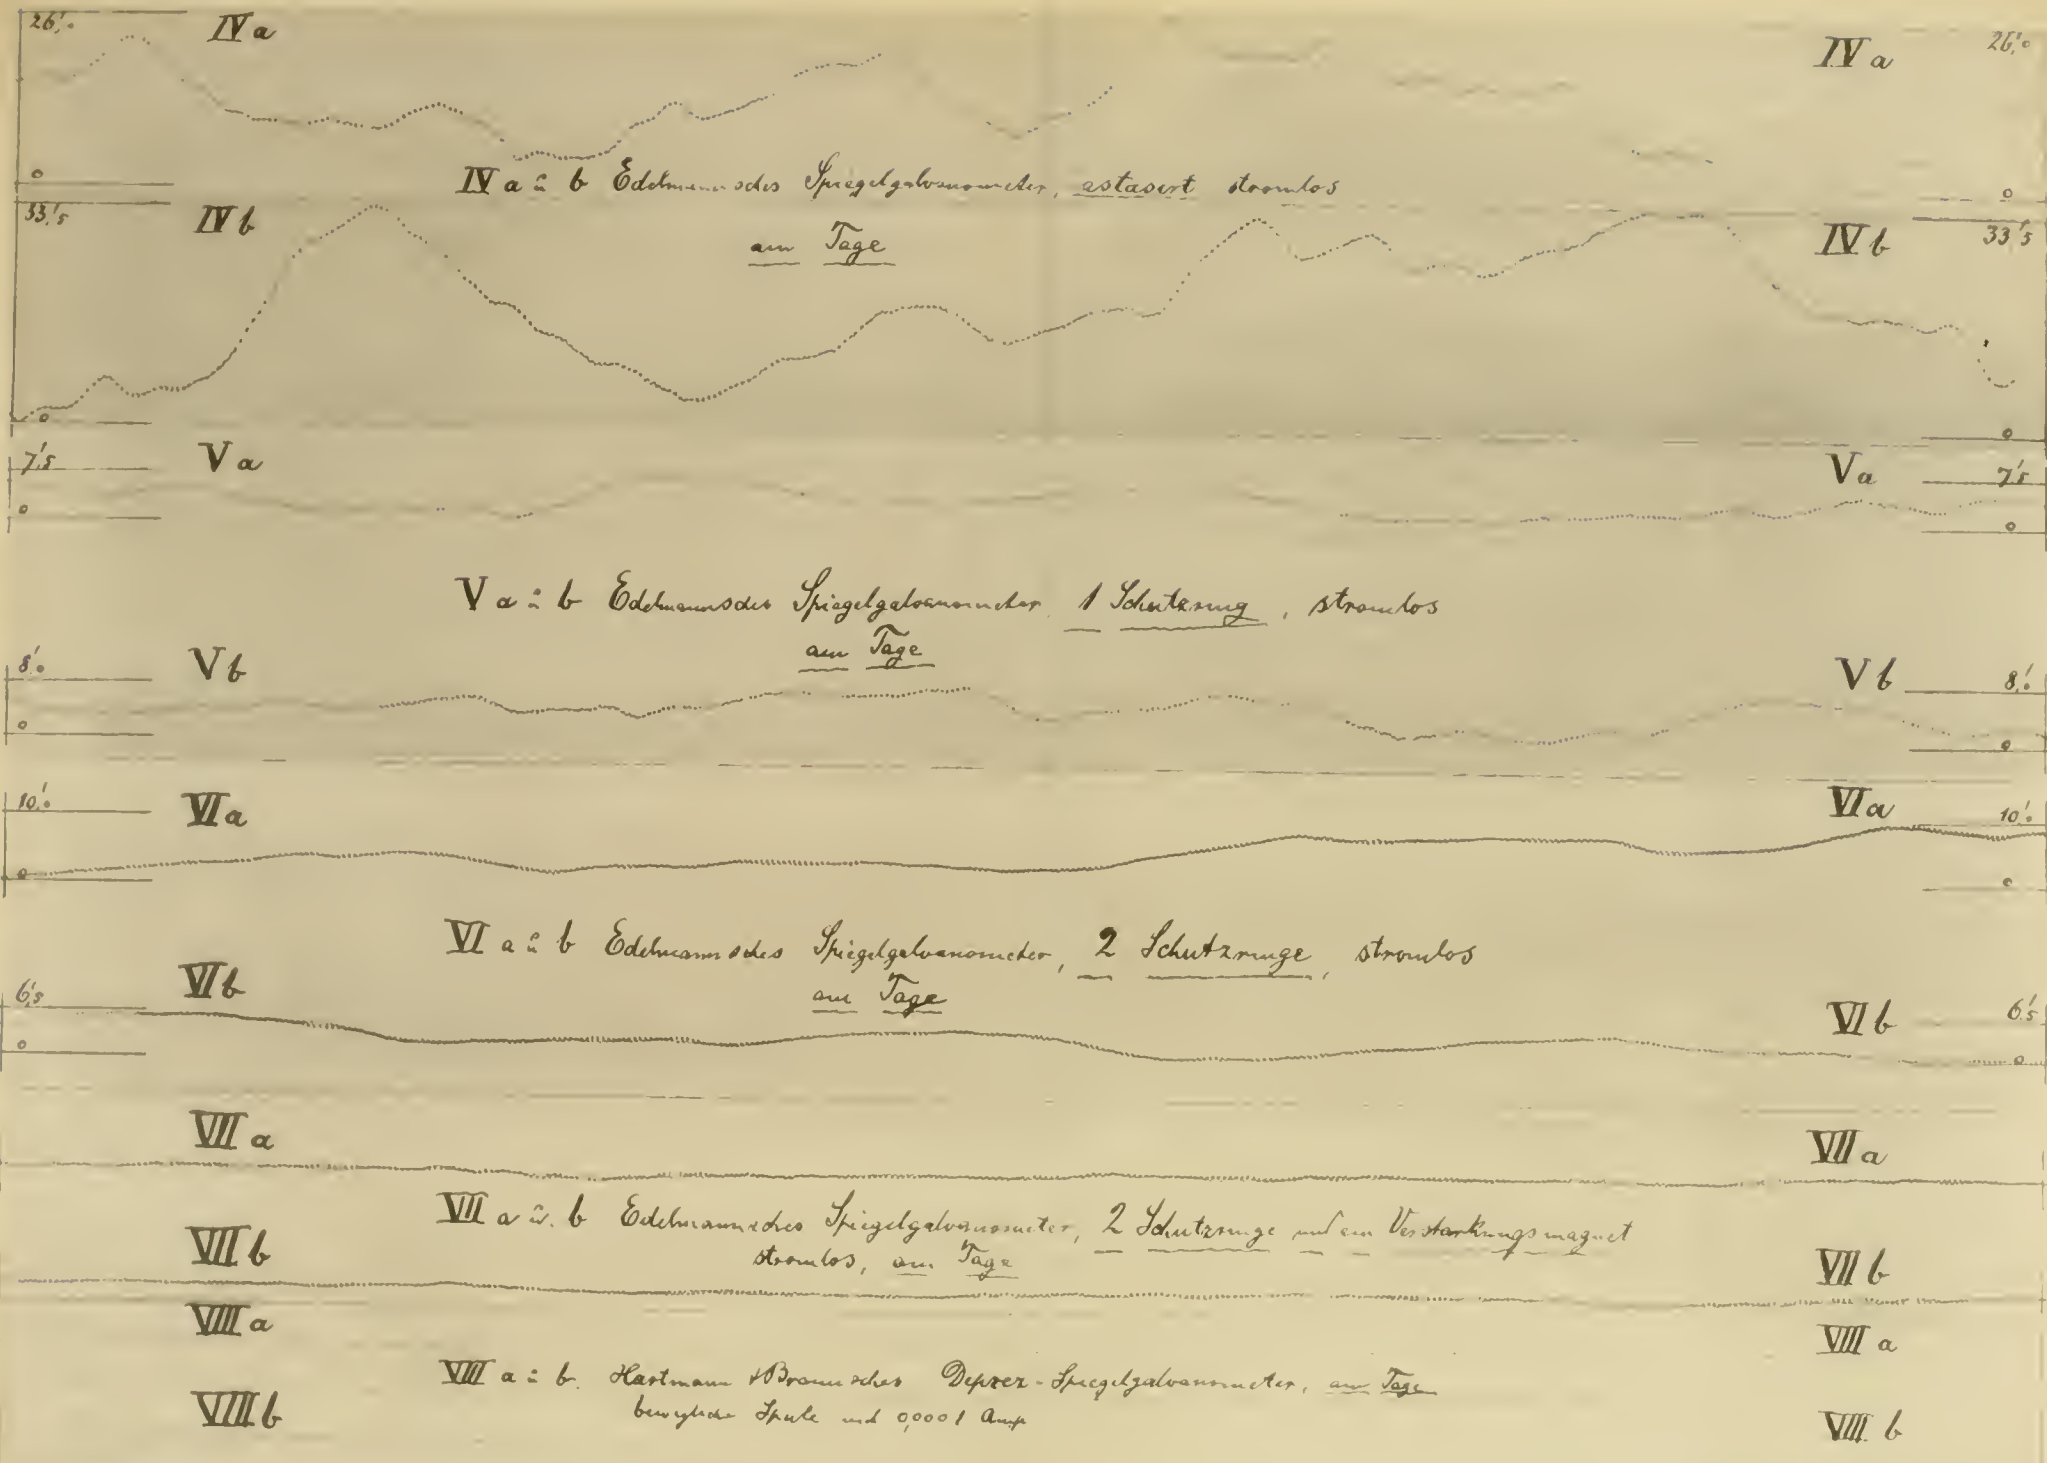 26,'0 IVa IVa 26,'0
0
IV a û b Edelmannsches Spiegelgalvanometer, astasiert stromlos
0
33,'5 IVb am Tage IVb 33,'5
0 0
7,'5 Va Va 7,'5
0 0
V a û b Edelmannsches Spiegelgalvanometer 1 Schutzring, stromlos
am Tage
8,'0 Vb Vb 8,'0
0 0
10,'0 VIa VIa 10,'0
0 0
VI a û b Edelmannsches Spiegelgalvanometer, 2 Schutzringe, stromlos
6,'5 VIb am Tage VIb 6,'5
0 0
VII a VII a
VII a û. b Edelmannsches Spiegelgalvanometer, 2 Schutzringe und ein Verstärkungsmagnet
VII b stromlos, am Tage VII b
VIII a VIII a
VIII a û b. Hartmann & Braunsches Deprez-Spiegelgalvanometer, am Tage
VIII b bewegliche Spule und 0,0001 Amp VIII. b